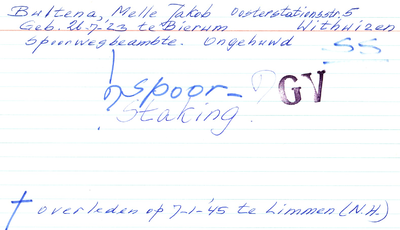 Bultena, Melle Jakob Oosterstationsstr. 5
Geb. 21-7-23 te Bierum Withuizen
Spoorwegbeambte. Ongehuwd
SS
? Spoor-
Staking.
? GV
† overleden op 7-1-'45 te Limmen (N.H.)